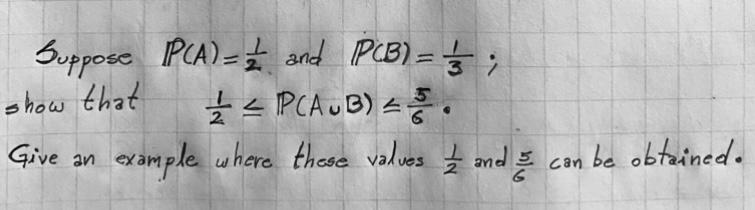 Suppose ℙ(A) = 1/2 and ℙ(B) = 1/3 ;
show that 1/2 ≤ ℙ(A ∪ B) ≤ 5/6 .
Give an example where these values 1/2 and 5/6 can be obtained.